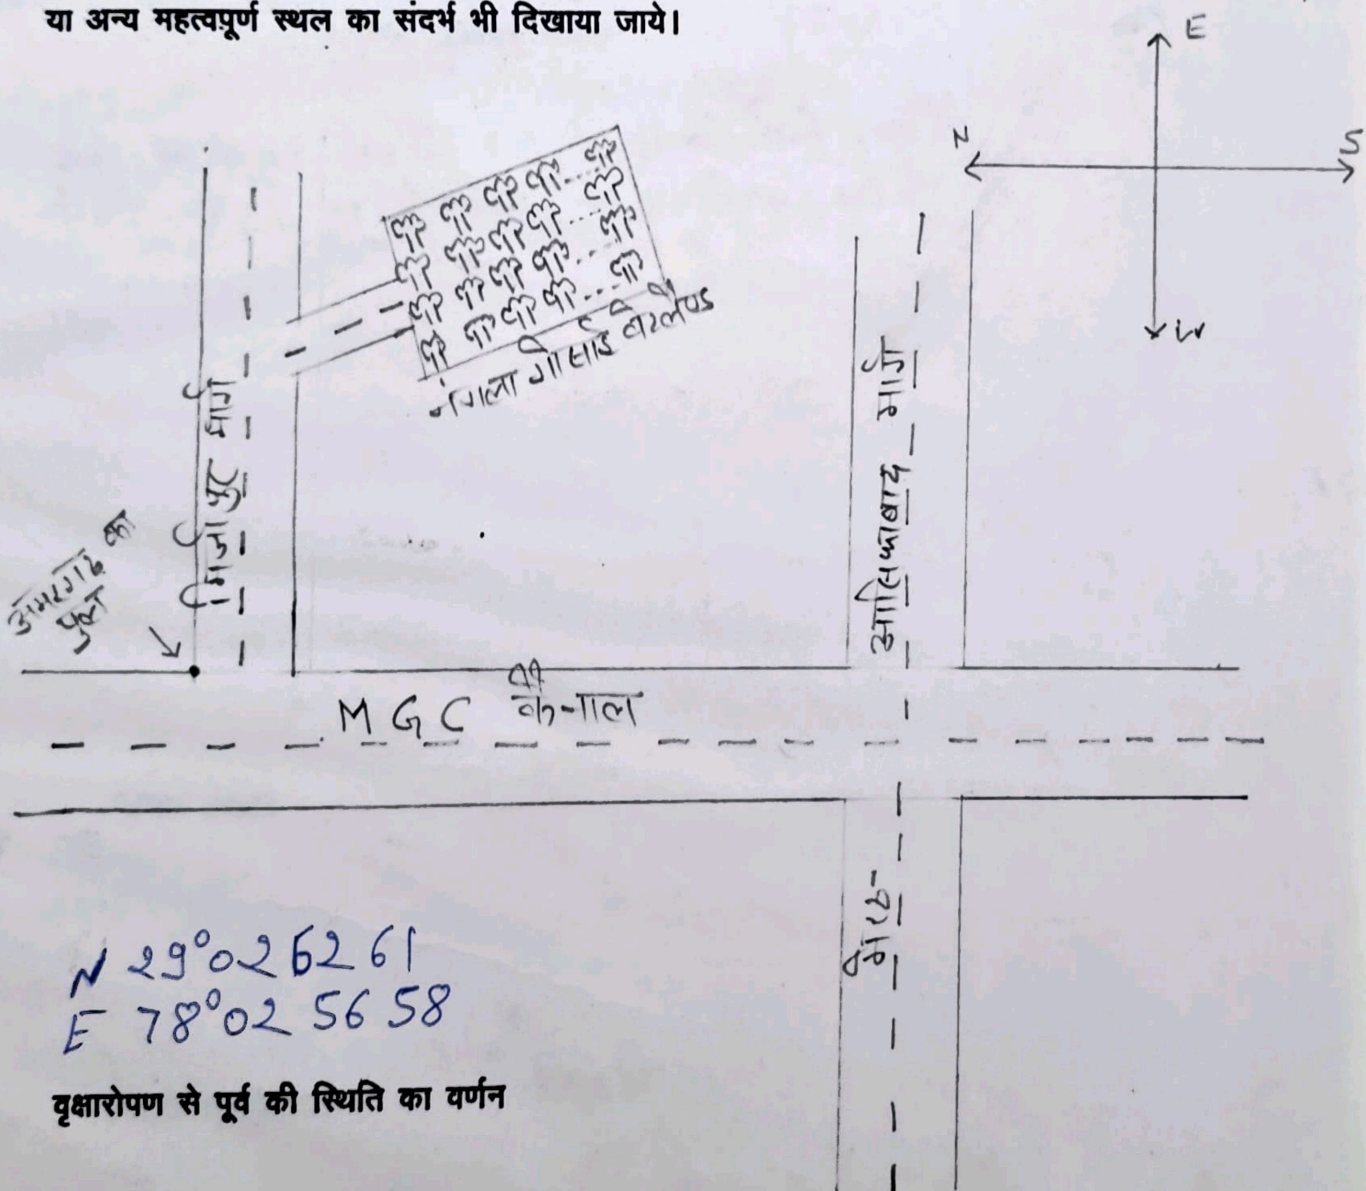 या अन्य महत्वपूर्ण स्थल का संदर्भ भी दिखाया जाये।
E
N
S
W
नंगला गोसाई वेटलैण्ड
मिर्जापुर मार्ग
आलिफाबाद मार्ग
अमरगढ का
पुल
M G C कैनाल
N 29°02 62 61
E 78°02 56 58
वृक्षारोपण से पूर्व की स्थिति का वर्णन